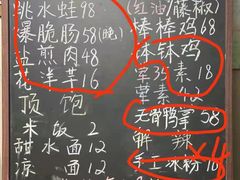 跳水蛙98
暴脆肠58(晚)
盐煎肉48
花洋芋16
顶饱
米饭2
甜水面12
凉面12
(红油/藤椒)
棒棒鸡68
体钵鸡
荤35素18
荤2素
无骨鸭掌58
解辣
手工冰粉16
×4